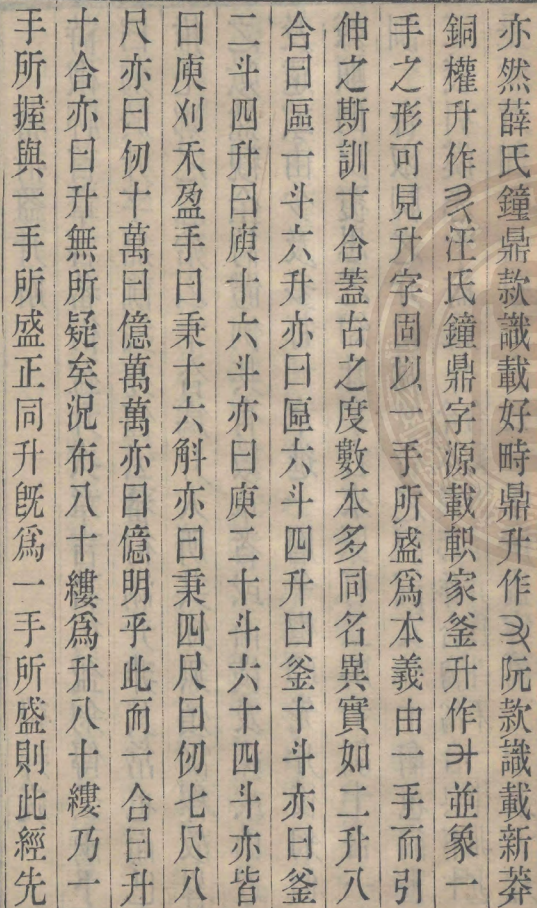 亦然薛氏鐘鼎款識載好畤鼎升作阮款識載新莽
銅權升作汪氏鐘鼎字源載軹家釜升作並象一
手之形可見升字固以一手所盛爲本義由一手而引
伸之斯訓十合蓋古之度數本多同名異實如二升八
合曰區一斗六升亦曰區六斗四升曰釜十斗亦曰釜
二斗四升曰庾十六斗亦曰庾二十斗六十四斗亦皆
曰庾刈禾盈手曰秉十六斛亦曰秉四尺曰仞七尺八
尺亦曰仞十萬曰億萬萬亦曰億明乎此而一合曰升
十合亦曰升無所疑矣況布八十縷爲升八十縷乃一
手所握與一手所盛正同升旣爲一手所盛則此經先